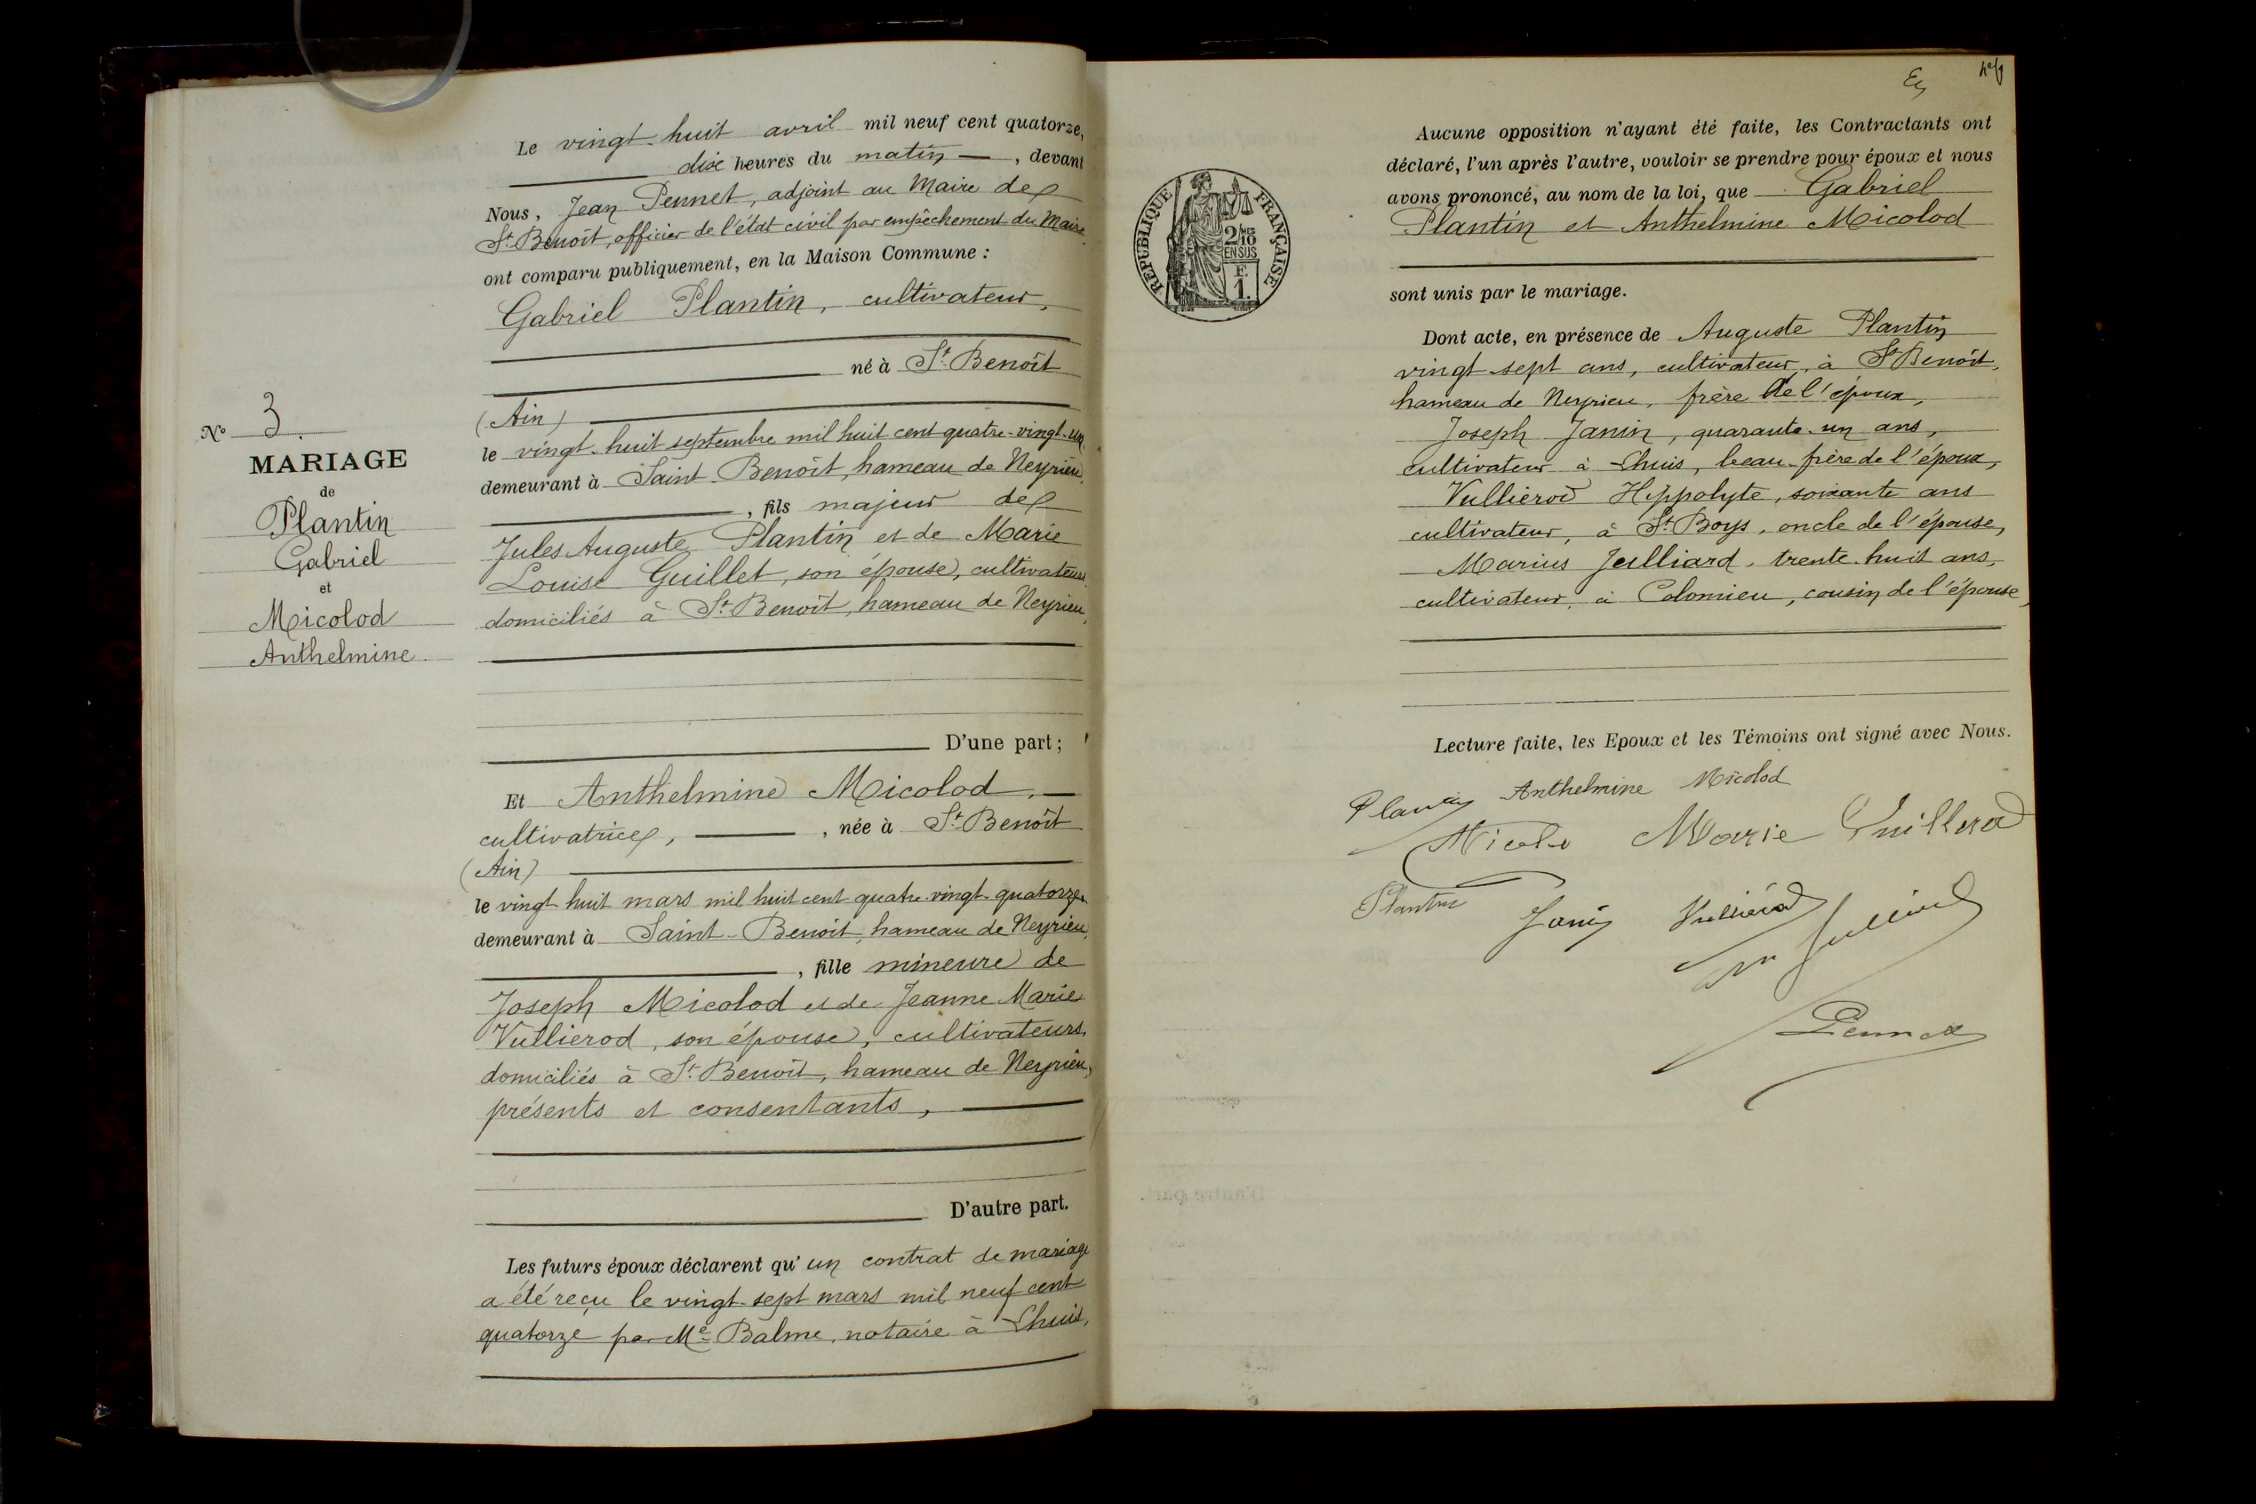 Le vingt-huit avril mil neuf cent quatorze,
dix heures du matin, devant
Nous, Jean Pennet, adjoint au Maire de
St Benoît, officier de l'état civil par empêchement du Maire
ont comparu publiquement, en la Maison Commune :
Gabriel Plantin, cultivateur,
né à St Benoît
(Ain)
le vingt-huit septembre mil huit cent quatre-vingt-un
demeurant à Saint-Benoît, hameau de Neyrieu,
, fils majeur de
Jules Auguste Plantin et de Marie
Louise Guillet, son épouse, cultivateurs
domiciliés à St Benoît, hameau de Neyrieu,
D'une part ;
N° 3.
MARIAGE
de
Plantin
Gabriel
et
Micolod
Anthelmine
Et Anthelmine Micolod,
cultivatrice, , née à St Benoît
(Ain)
le vingt huit mars mil huit cent quatre-vingt-quatorze
demeurant à Saint-Benoît, hameau de Neyrieu,
, fille mineure de
Joseph Micolod et de Jeanne Marie
Vullierod, son épouse, cultivateurs
domiciliés à St Benoît, hameau de Neyrieu,
présents et consentants,
D'autre part.
Les futurs époux déclarent qu'un contrat de mariage
a été reçu le vingt-sept mars mil neuf cent
quatorze par Me Balme, notaire à Lhuis,
RÉPUBLIQUE FRANÇAISE
2/10
EN SUS
F.
1.
Aucune opposition n'ayant été faite, les Contractants ont
déclaré, l'un après l'autre, vouloir se prendre pour époux et nous
avons prononcé, au nom de la loi, que Gabriel
Plantin et Anthelmine Micolod
sont unis par le mariage.
Dont acte, en présence de Auguste Plantin
vingt-sept ans, cultivateur, à St Benoît,
hameau de Neyrieu, frère de l'époux,
Joseph Janin, quarante-un ans,
cultivateur à Lhuis, beau-frère de l'époux,
Vullierod Hippolyte, soixante ans
cultivateur, à St Boys, oncle de l'épouse,
Marius Julliard, trente-huit ans,
cultivateur, à Colomieu, cousin de l'épouse,
Lecture faite, les Epoux et les Témoins ont signé avec Nous.
Plantin Anthelmine Micolod
Marie Vuillerod
Plantin Janin Vulliérod
Pennet